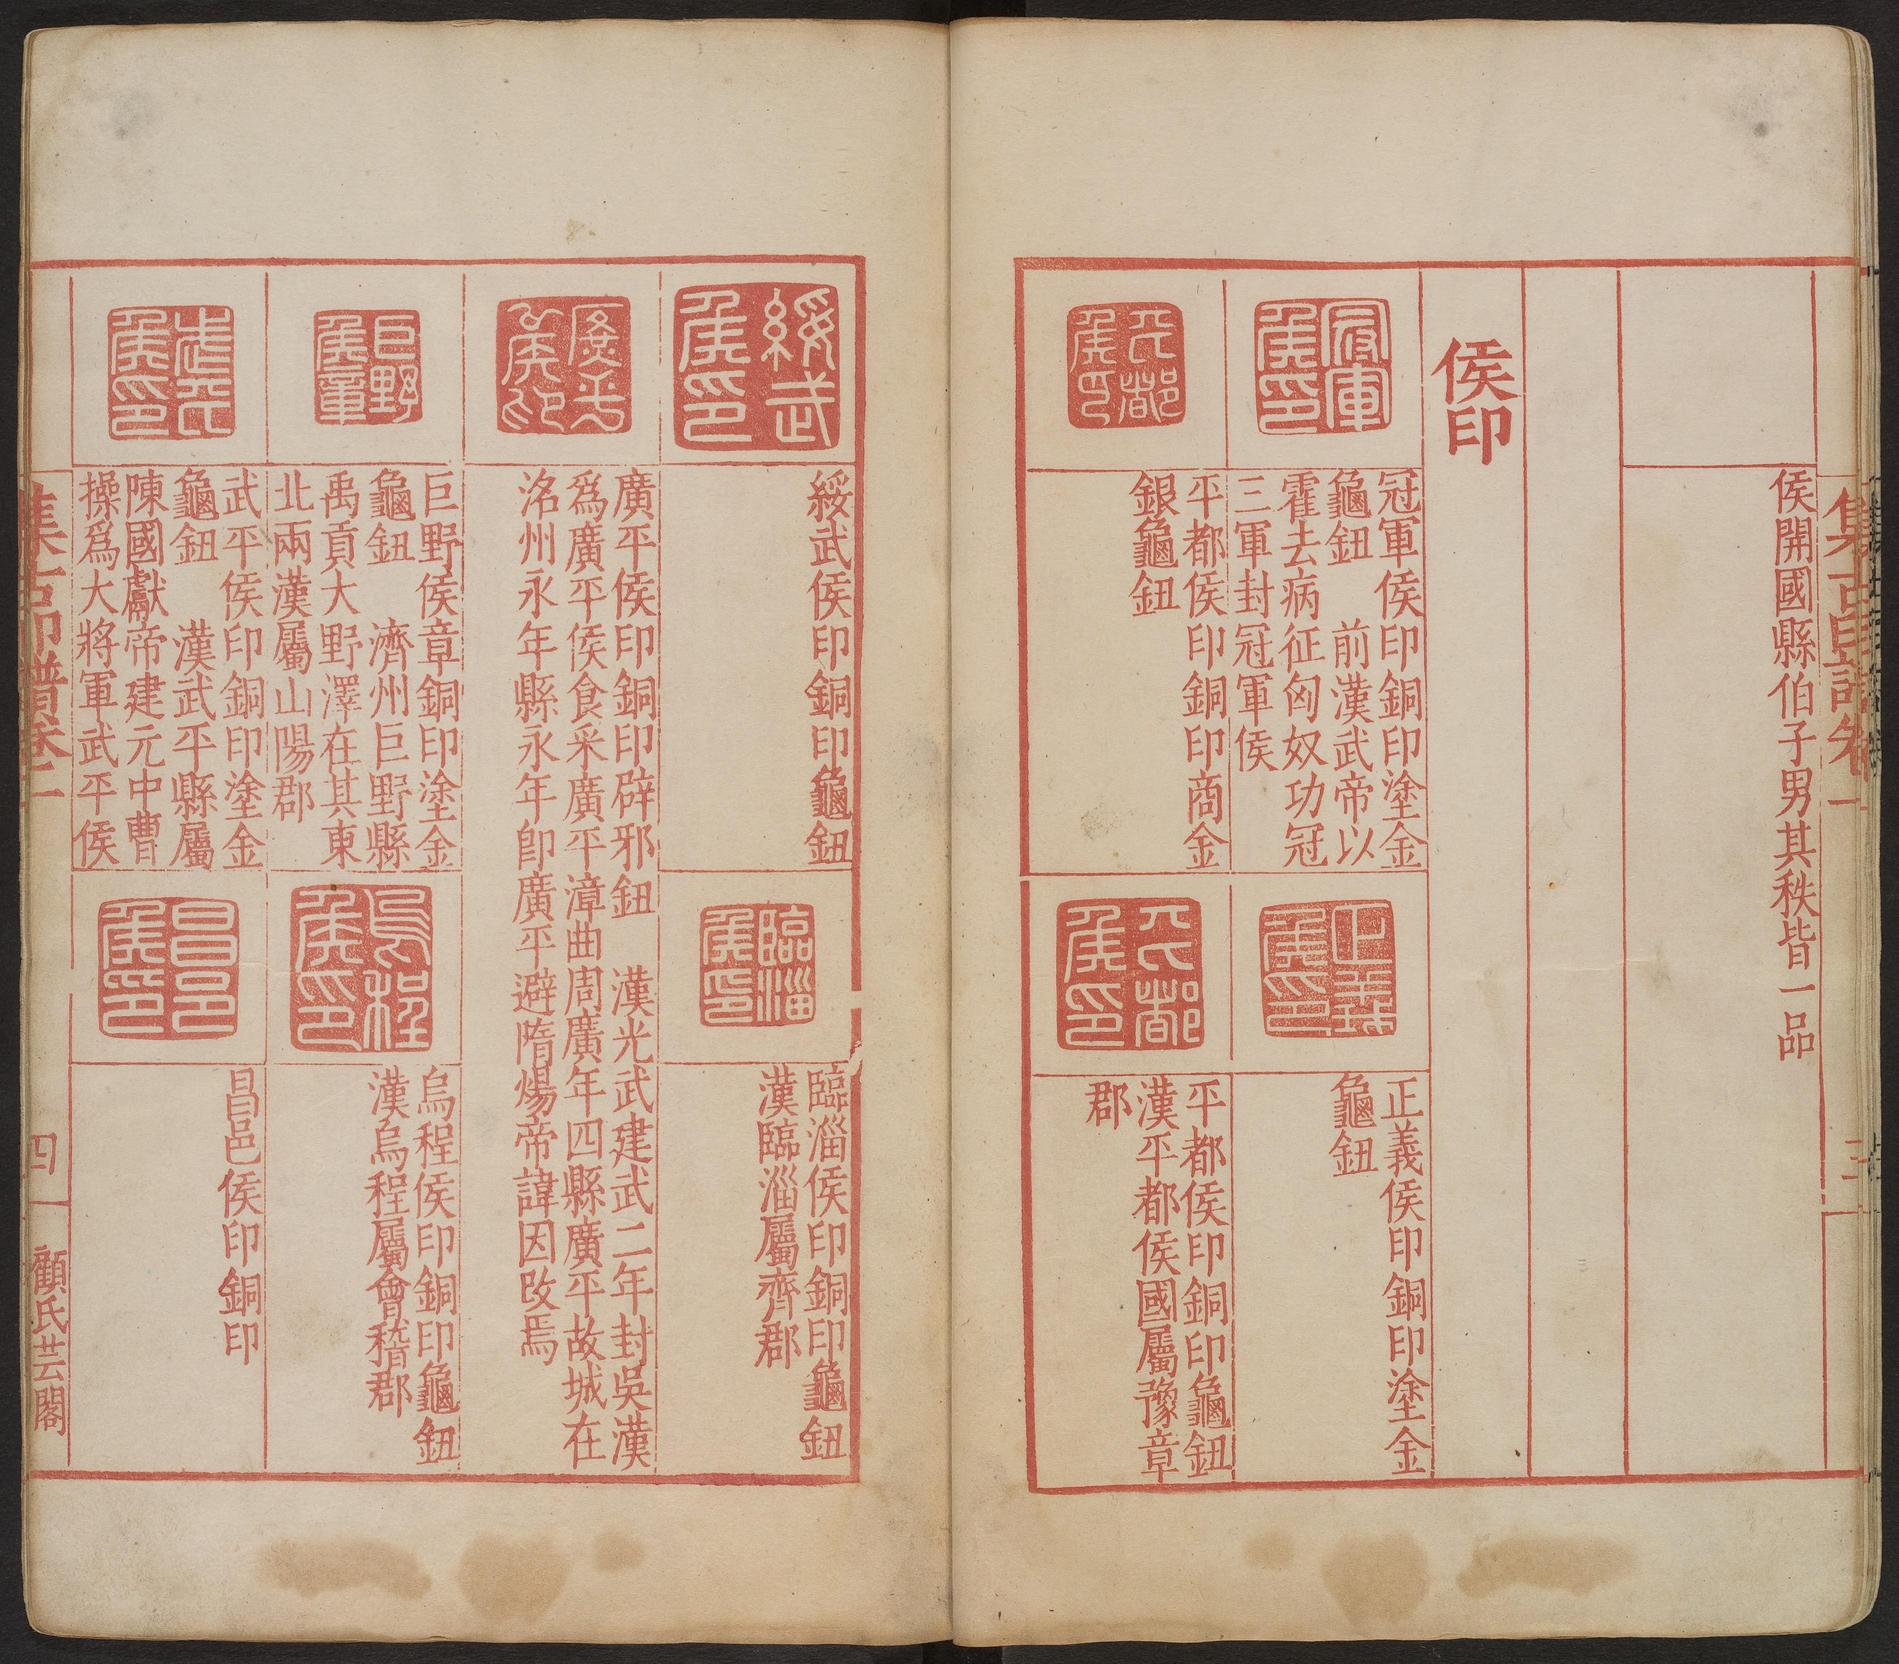 集古印譜卷一
三
侯開國縣伯子男其秩皆一品
侯印
冠軍侯印
冠軍侯印銅印塗金
龜鈕　前漢武帝以
霍去病征匈奴功冠
三軍封冠軍侯
正義侯印
正義侯印銅印塗金
龜鈕
平都侯印
平都侯印銅印商金
銀龜鈕
平都侯印
平都侯印銅印龜鈕
漢平都侯國屬豫章
郡
綏武侯印
綏武侯印銅印龜鈕
臨淄侯印
臨淄侯印銅印龜鈕
漢臨淄屬齊郡
廣平侯印
廣平侯印銅印辟邪鈕　漢光武建武二年封吳漢
爲廣平侯食釆廣平漳曲周廣年四縣廣平故城在
洺州永年縣永年卽廣平避隋煬帝諱因改焉
巨野侯章
巨野侯章銅印塗金
龜鈕　濟州巨野縣
禹貢大野澤在其東
北兩漢屬山陽郡
烏程侯印
烏程侯印銅印龜鈕
漢烏程屬會稽郡
武平侯印
武平侯印銅印塗金
龜鈕　漢武平縣屬
陳國獻帝建元中曹
操爲大將軍武平侯
昌邑侯印
昌邑侯印銅印
集古印譜卷一
四
顧氏芸閣